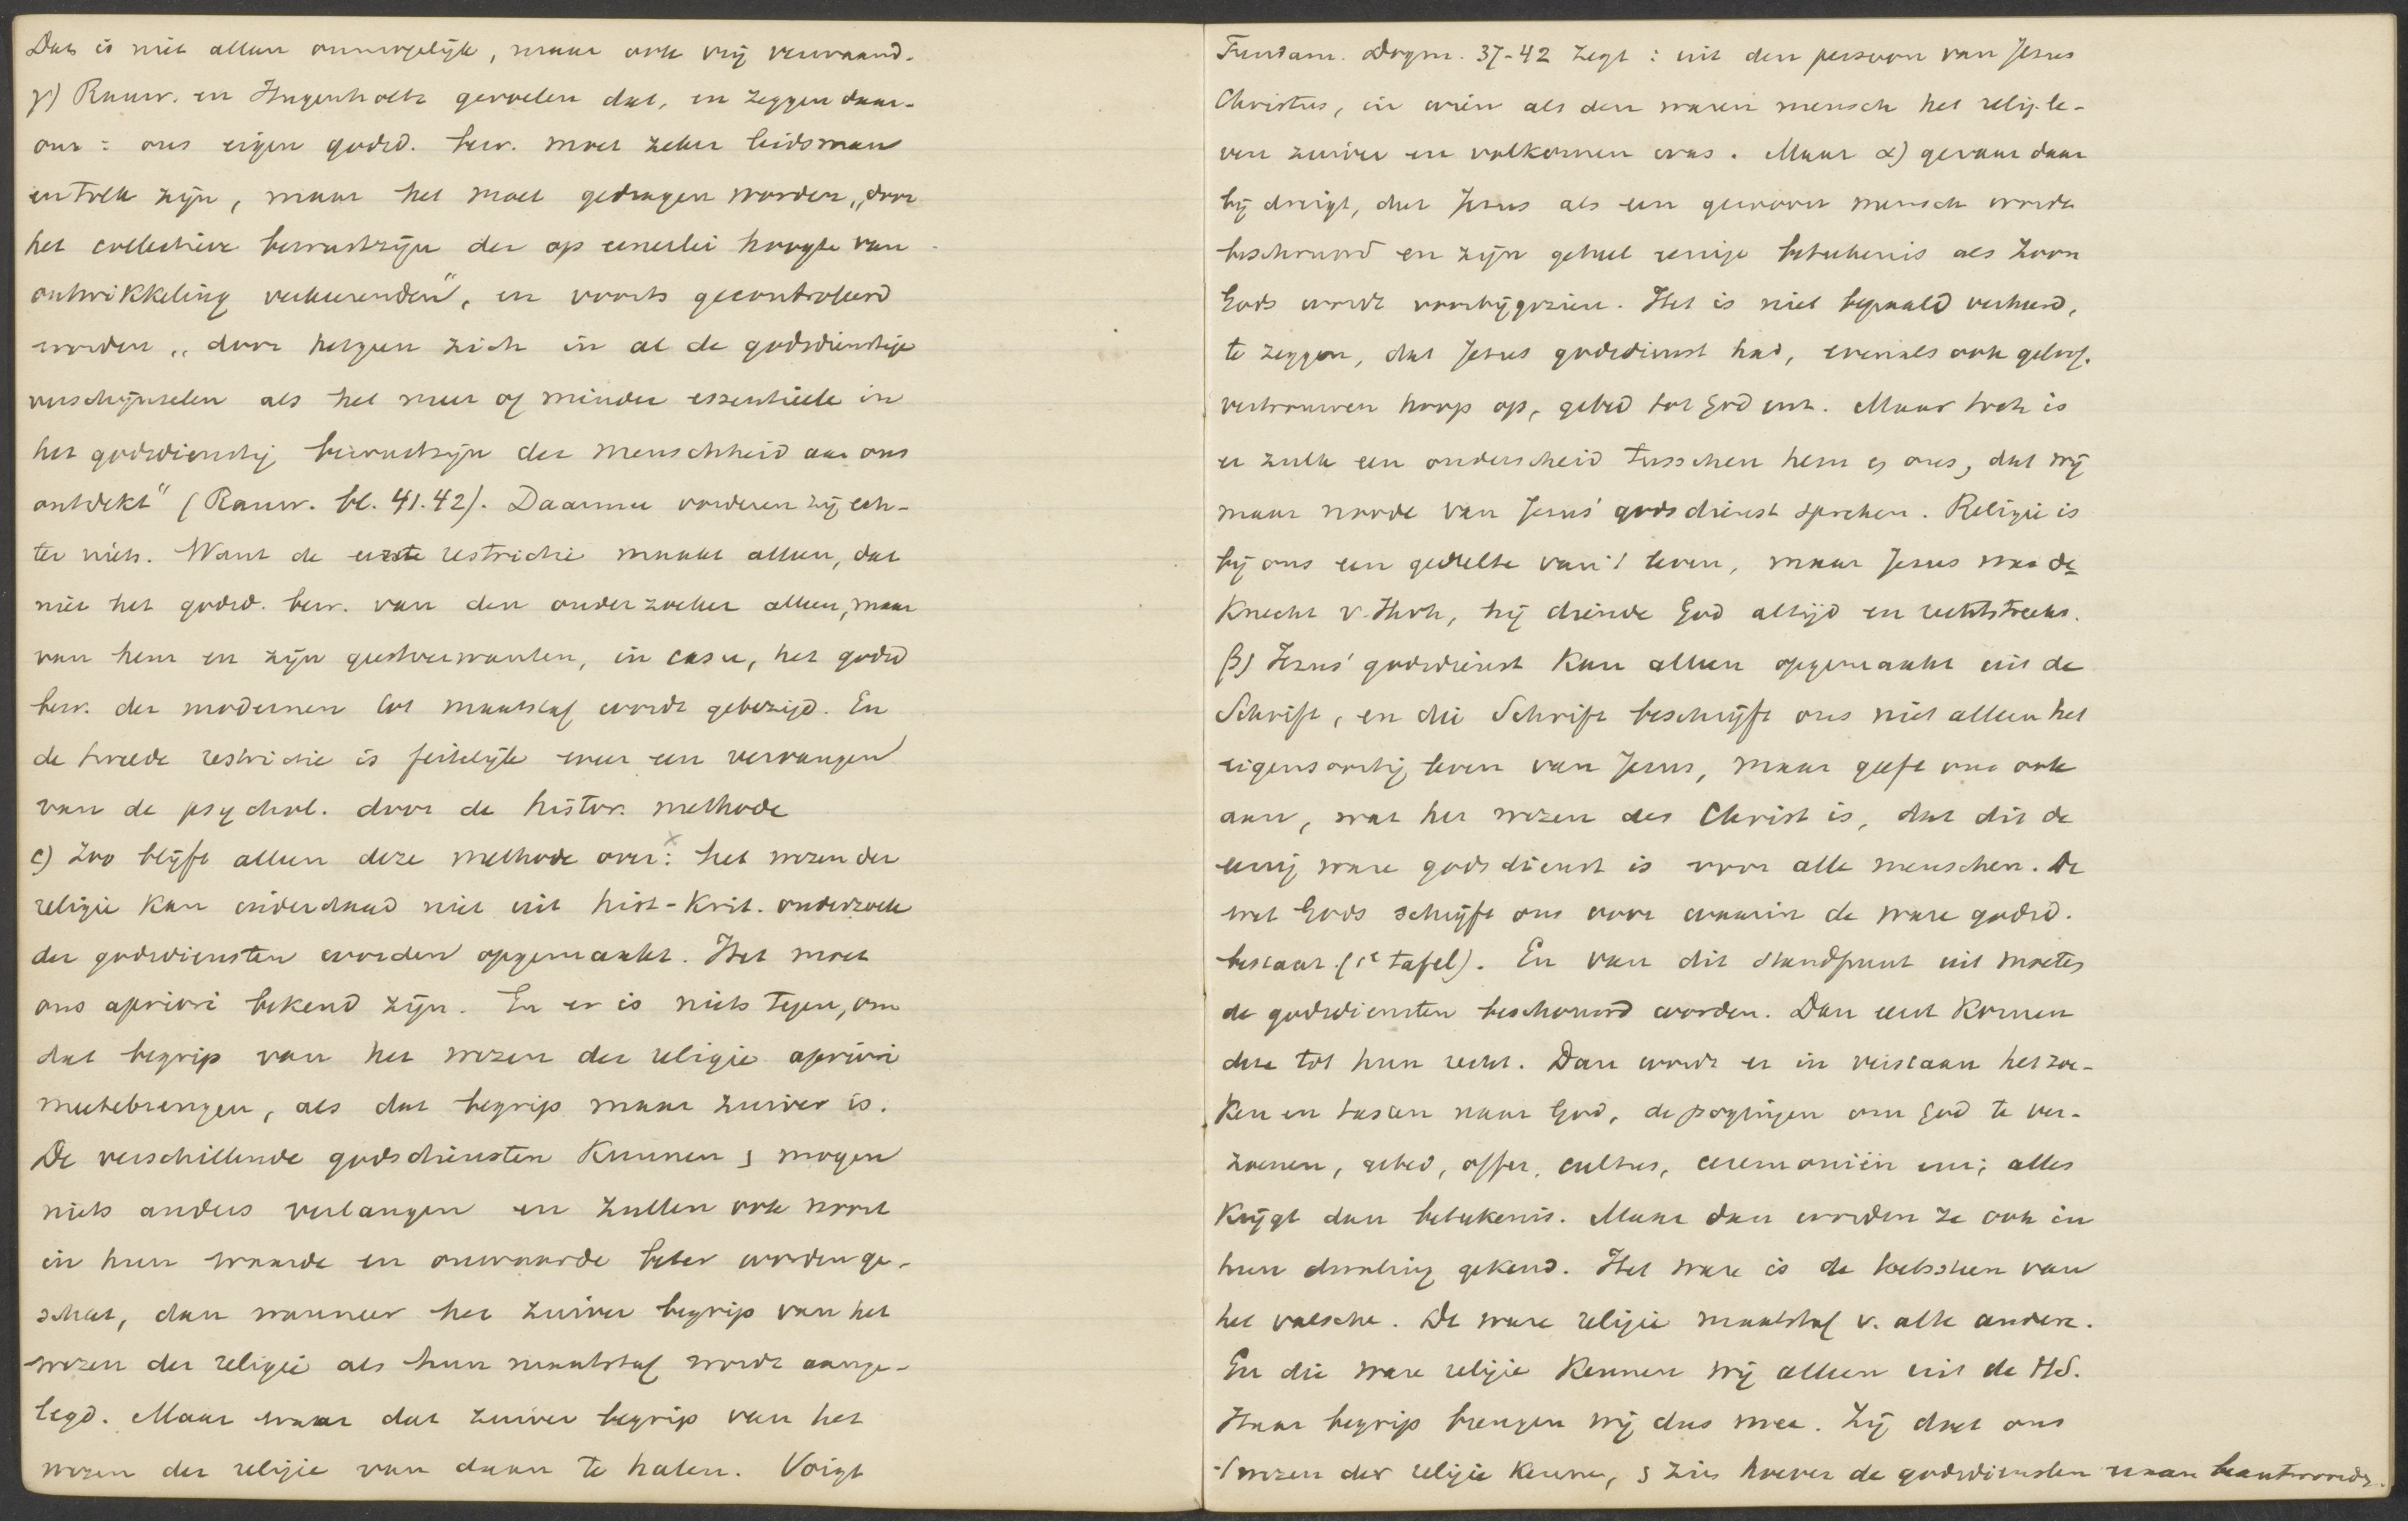 Dat is niet alleen onmogelijk, maar ook vrij verwaand.
γ) Rauw. en Hugenholtz gevoelen dat, en zeggen daar-
om: ons eigen godsd. bew. moet zeker leidsman
en tolk zijn, maar het moet gedragen worden „door
het collectieve bewustzijn der op eenerlei hoogte van
ontwikkeling verkeerenden", en voorts gecontroleerd
worden „door hetgeen zich in al de godsdienstige
verschijnselen als het meer of minder essentieele in
het godsdienstig bewustzijn der menschheid aan ons
ontdekt" (Rauw. bl. 41.42). Daarmee vorderen zij ech-
ter niets. Want de eerste restrictie maakt alleen, dat
niet het godsd. bew. van den onderzoeker alleen, maar
van hem en zijn geestverwanten, in casu, het godsd
bew. der modernen tot maatstaf wordt gebezigd. En
de tweede restrictie is feitelijk weer een vervangen
van de psychol. door de histor. methode
c) Zoo blijft alleen deze methode over: x het wezen der
religie kan inderdaad niet uit hist-krit. onderzoek
der godsdiensten worden opgemaakt. Het moet
ons apriori bekend zijn. En er is niets tegen, om
dat begrip van het wezen der religie apriori
meetebrengen, als dat begrip maar zuiver is.
De verschillende godsdiensten kunnen & mogen
niets anders verlangen en zullen ook nooit
in hun waarde en onwaarde beter worden ge-
schat, dan wanneer het zuiver begrip van het
wezen der religie als hun maatstaf wordt aange-
legd. Maar waar dat zuiver begrip van het
wezen der religie van daan te halen. Voigt
Fundam. Dogm. 37-42 zegt: uit den persoon van Jesus
Christus, in wien als den waren mensch het relig. le-
ven zuiver en volkomen was. Maar α) gevaar daar
bij dreigt, dat Jesus als een gewoon mensch wordt
beschouwd en zijn geheel eenige beteekenis als Zoon
Gods wordt voorbijgezien. Het is niet bepaald verkeerd,
te zeggen, dat Jezus godsdienst had, evenals ook geloof.
vertrouwen hoop op, gebed tot God enz. Maar toch is
er zulk een onderscheid tusschen hem & ons, dat wij
maar noode van Jesus' godsdienst spreken. Religie is
bij ons een gedeelte van 't leven, maar Jesus was de
Knecht v. Hvh, hij diende God altijd en rechtstreeks.
β) Jezus' godsdienst kan alleen opgemaakt uit de
Schrift, en die Schrift beschrijft ons niet alleen het
eigensoortig leven van Jesus, maar geeft ons ook
aan, wat het wezen des Christ is, dat dit de
eenig ware godsdienst is voor alle menschen. De
wet Gods schrijft ons voor waarin de ware godsd.
bestaat (1e tafel). En van dit standpunt uit moeten
de godsdiensten beschouwd worden. Dan eerst komen
deze tot hun recht. Dan wordt er in verstaan het zoe-
ken en tasten naar God, de pogingen om God te ver-
zoenen, gebed, offer, cultus, ceremoniën enz; alles
krijgt dan beteekenis. Maar dan worden ze ook in
hun dwaling gekend. Het ware is de toetssteen van
het valsche. De ware religie maatstaf v. alle andere.
En die ware religie kennen wij alleen uit de HS.
Haar begrip brengen wij dus mee. Zij doet ons
't wezen der religie kennen, & zien hoever de godsdiensten eraan beantwoorden.